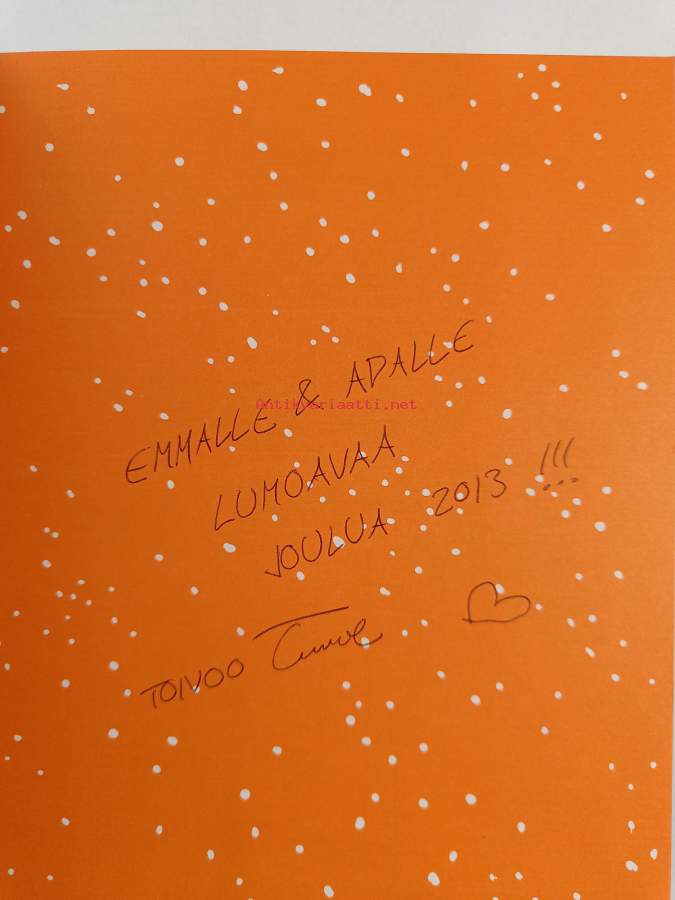 EMMALLE & ADALLE
Antikvariaatti.net
LUMOAVAA
JOULUA 2013 !!!
TOIVOO